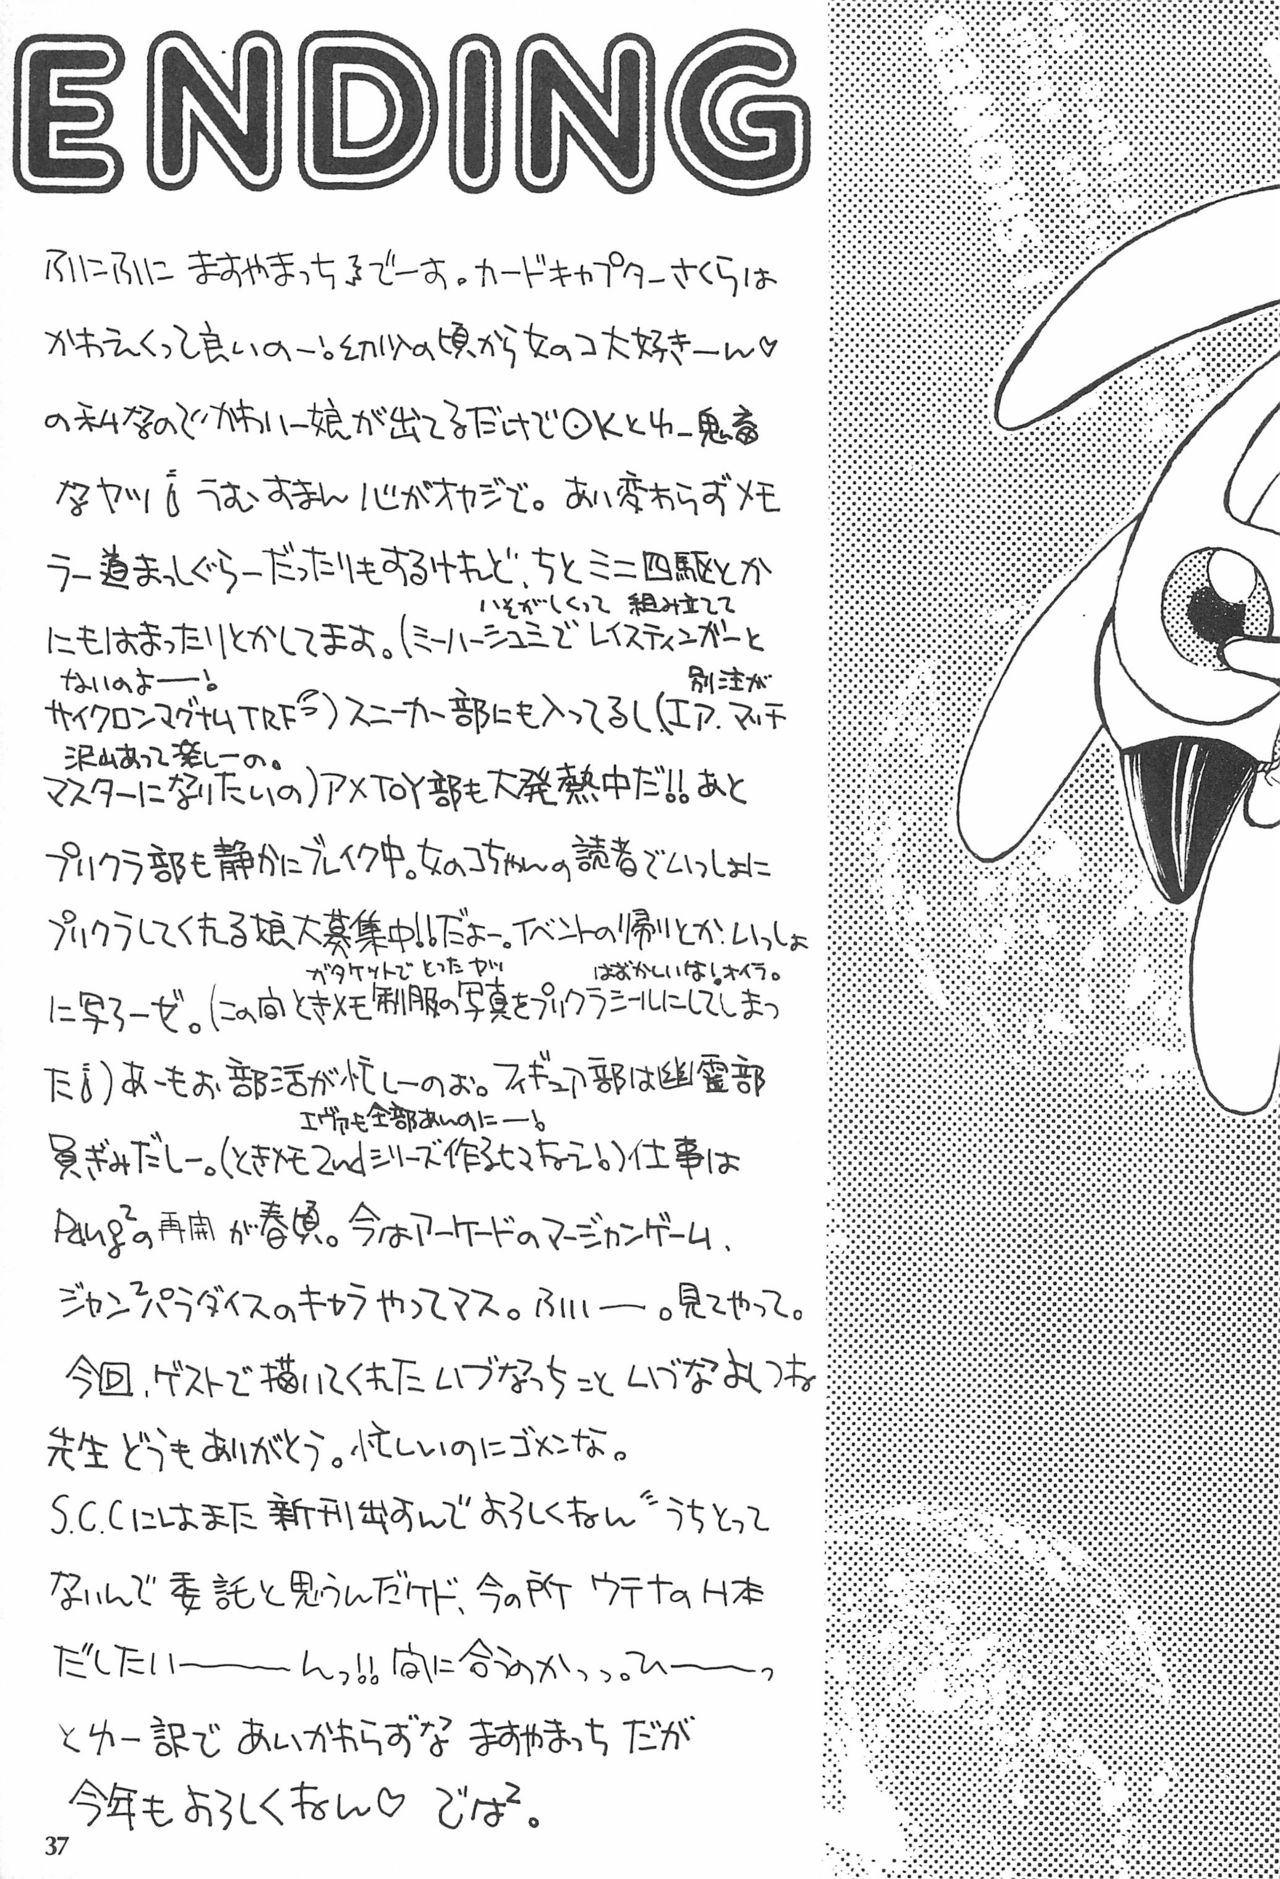 ENDING
ふにふに ますやまっちょでーす。カードキャプターさくらは
かわえくって良いのー!幼少の頃から女のコ大好きーん♡
の私なのでかわいー娘が出てるだけでOKとゆー鬼畜
なヤツ うむすまん 心がオヤジで。あい変わらずメモ
ラー道まっしぐらーだったりもするけれど、ちとミニ四駆とか
にもはまったりとかしてます。(ミーハーシュミでレイスティンガーと
いそがしくって 組み立てて
ないのよーー!
サイクロンマグナムTRFっ)スニーカー部にも入ってるし(エア.マッチ
別注が
沢山あって楽しーの。
マスターになりたいの)アメTOY部も大発熱中だ!!あと
プリクラ部も静かにブレイク中。女のコちゃんの読者でいっしょに
プリクラしてくれる娘大募集中!!だよー。イベントの帰りとか、いっしょ
に写ろーぜ。(この間ときメモ制服の写真をプリクラシールにしてしまっ
ガタケットでとったヤツ
はずかしいな!オイラ。
た)あーもお部活が忙しーのよ。フィギュア部は幽霊部
員ぎみだしー。(ときメモ2ndシリーズ作るヒマねえ!)仕事は
エヴァも全部あんのにーー!
Pang²の再開が春頃。今はアーケードのマージャンゲーム、
ジャン²パラダイスのキャラやってマス。ふいーー。見てやって。
今回、ゲストで描いてくれたいづなっちこといづなよしつね
先生どうもありがとう。忙しいのにゴメンな。
S.C.Cにはまた新刊出すんでよろしくねん うちとって
ないんで委託と思うんだケド、今の所ウテナのH本
だしたいーーーーんっ!!間に合うのかっっ。ひーーーっ
とゆー訳であいかわらずなますやまっちだが
今年もよろしくねん♡ では²。
37